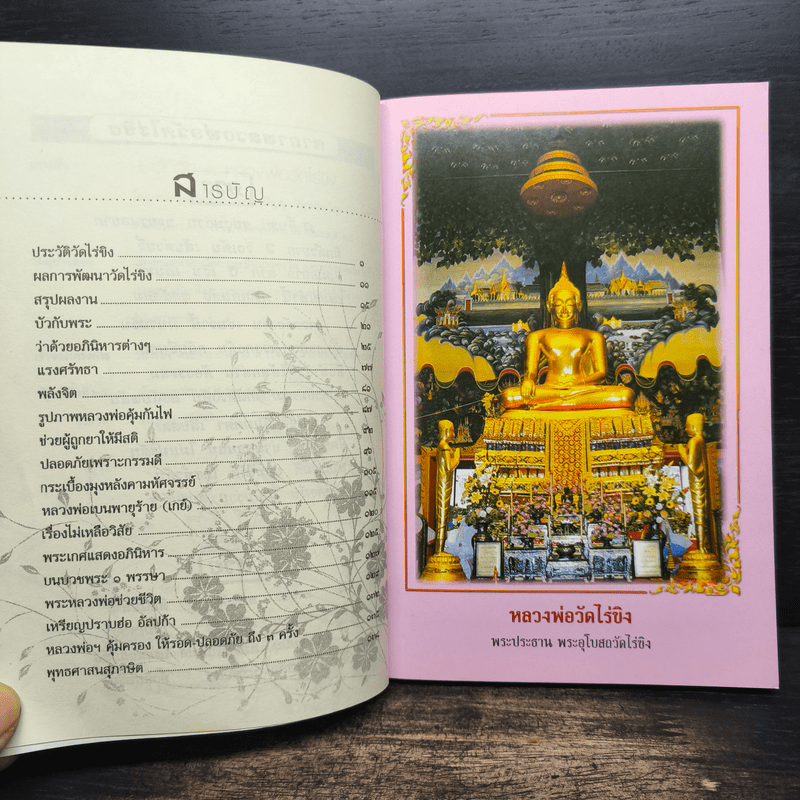 สารบัญ
ประวัติวัดไร่ขิง ๑
ผลการพัฒนาวัดไร่ขิง ๑๑
สรุปผลงาน ๑๕
บัวกับพระ ๒๑
ว่าด้วยอภินิหารต่างๆ ๒๕
แรงศรัทธา ๗๗
พลังจิต ๘๐
รูปภาพหลวงพ่อคุ้มกันไฟ ๘๗
ช่วยผู้ถูกยาให้มีสติ ๙๒
ปลอดภัยเพราะกรรมดี
กระเบื้องมุงหลังคามหัศจรรย์
หลวงพ่อเบนพายุร้าย (เกย์)
เรื่องไม่เหลือวิสัย
พระเกศแสดงอภินิหาร
บนบวชพระ ๑ พรรษา
พระหลวงพ่อช่วยชีวิต
เหรียญปราบฮ่อ อัลปก้า
หลวงพ่อฯ คุ้มครอง ให้รอด-ปลอดภัย ถึง ๓ ครั้ง
พุทธศาสนสุภาษิต
หลวงพ่อวัดไร่ขิง
พระประธาน พระอุโบสถวัดไร่ขิง